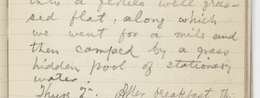 into a gentle well gras-
sed flat, along which
we went for a mile and
then camped by a grass
hidden pool of stationary
water.
Thurs 2nd. After breakfast th